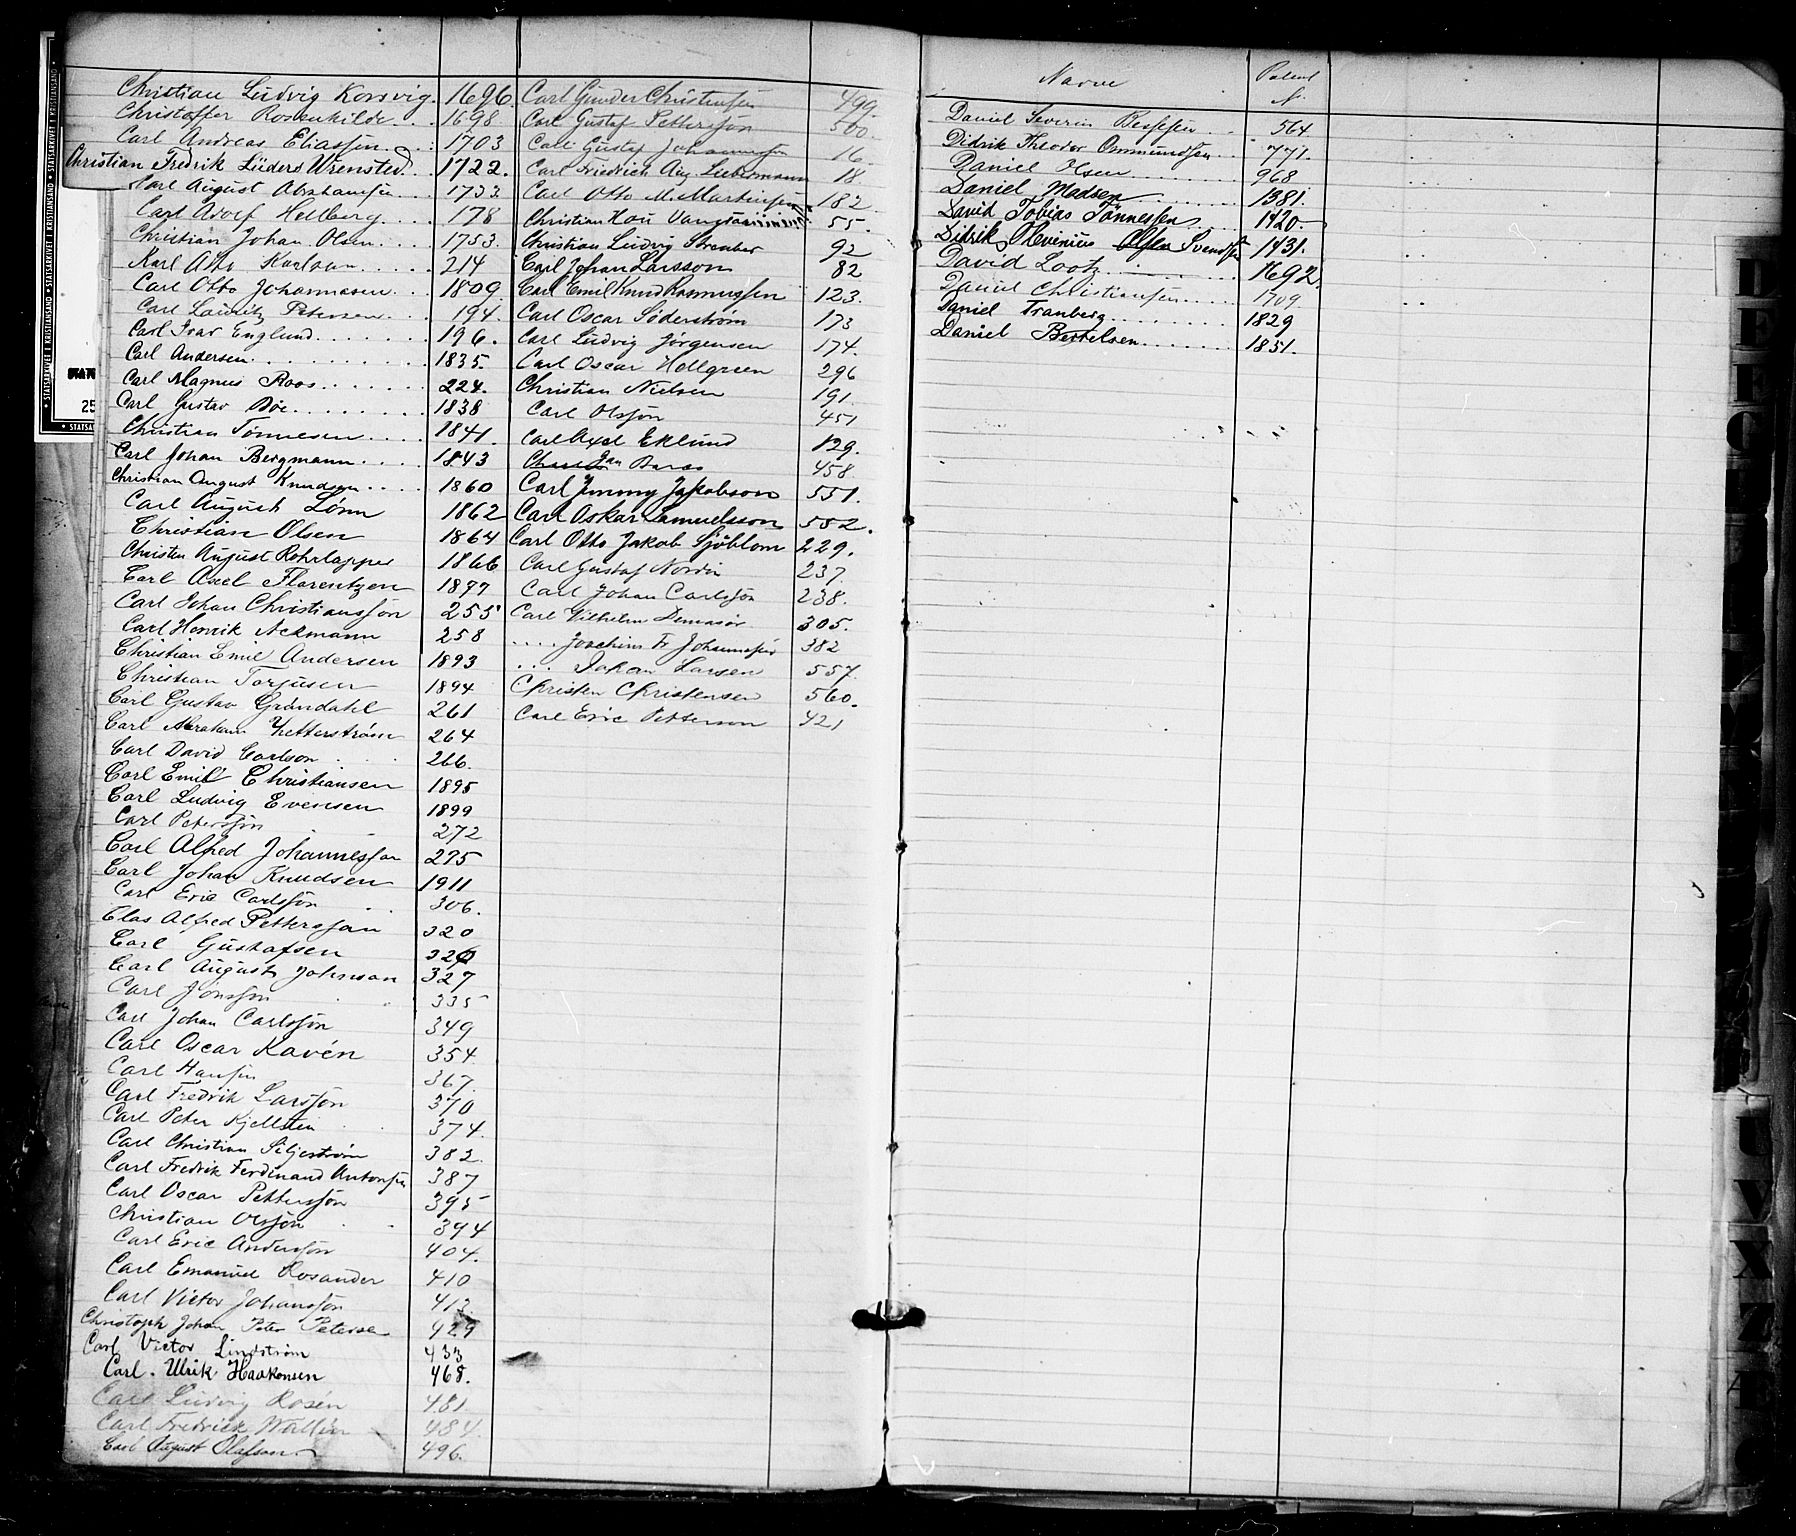 Christian Ludvig Korsvig. 1696
Christoffer Rosenkilde... 1698
Carl Andreas Eliassen... 1703
Christian Fredrik Lüders Wrensted. 1722.
Karl August Abrahamsen.. 1733
Carl Adolf Hellberg... 178
Christian Johan Olsen.... 1753.
Karl Otto Karlsen..... 214
Carl Otto Johannesen.... 1809
Carl Lauritz Petersen.... 194.
Carl Ivar Englund....... 196.
Carl Andersen......... 1835.
Carl Magnus Roos...... 224.
Carl Gustav Böe........ 1838
Christian Tönnesen.... 1841.
Carl Johan Bergmann.... 1843
Christian August Knudsen.... 1860
Carl August Lönn 1862
Christian Olsen 1864
Christen August Rohrlapper 1866
Carl Axel Florentzen 1877
Carl Johan Christiansson 255
Carl Henrik Ackmann 258
Christian Emil Andersen 1893
Christian Torjusen 1894
Carl Gustav Grøndahl 261
Carl Abraham Zetterstrøm 264
Carl David Carlson 266.
Carl Emil Christiansen 1895
Carl Ludvig Evensen 1899
Carl Petersson 272
Carl Alfred Johannesson 275
Carl Johan Knudsen 1911
Carl Eric Carlsson 306.
Clas Alfred Pettersson 320
Carl Gustafsen 326
Carl August Johnson 327
Carl Jönsson 335
Carl Johan Carlsson 349
Carl Oscar Kavén 354
Carl Hansen 367.
Carl Fredrik Larsson 370
Carl Peter Kjellsten 374.
Carl Christian Siljeström 382.
Carl Fredrik Ferdinand Antonsen 387
Carl Oscar Pettersson 395
Christian Olsson 394
Carl Eric Andersson 404.
Carl Emanuel Rosander 410
Carl Victor Johansson 413.
Christoph Johan Peter Petersen 429
Carl Victor Lindström 433
Carl. Ulrik Haakonsen 468.
Carl Ludvig Rosén 481
Carl Fredrick Wallin 484.
Carl August Olafson 496.
Carl Gunder Christensen 499.
Carl Gustaf Pettersson 500.
Carl Gustaf Johannesson 16
Carl Friedrich Aug. 18
Carl Otto M. Martinsen 182
Christian Hou 55.
Christian Ludvig Streuber 92
Carl Johan Larsson 82
Carl Emil Knud Rasmussen 123.
Carl Oscar Söderström 173
Carl Ludvig Jörgensen 174.
Carl Oscar Hellgreen 296
Christian Nielsen 191.
Carl Olsson 451
Carl Axel Eklund 129.
Jan 458
Carl Jimmy Jakobson 551.
Carl Oskar Samuelsson 552.
Carl Otto Jakob Sjöblom 229.
Carl Gustaf Nordin 237.
Carl Johan Carlsson 238.
Carl Vilhelm 305.
.... Joachim Fr. Johannesen 382
... Johan Larsen 557.
Christen Christensen 560.
Carl Eric Petterson 421
Navne Patent
N.
Daniel Severin 564.
Didrik Theodor Ommundsen... 771.
Daniel Olsen......... 968
Daniel Madsen......... 1381.
David Tobias Tönnessen 1420.
Didrik Olevinius Olsen Svendsen 1431.
David Lootz......... 1692.
Daniel Christiansen..... 1709.
Daniel Tranberg......... 1829
Daniel Bertelsen....... 1851.
STATSARKIVET I KRISTIANSAND
STAT
25
D E
U V X Z